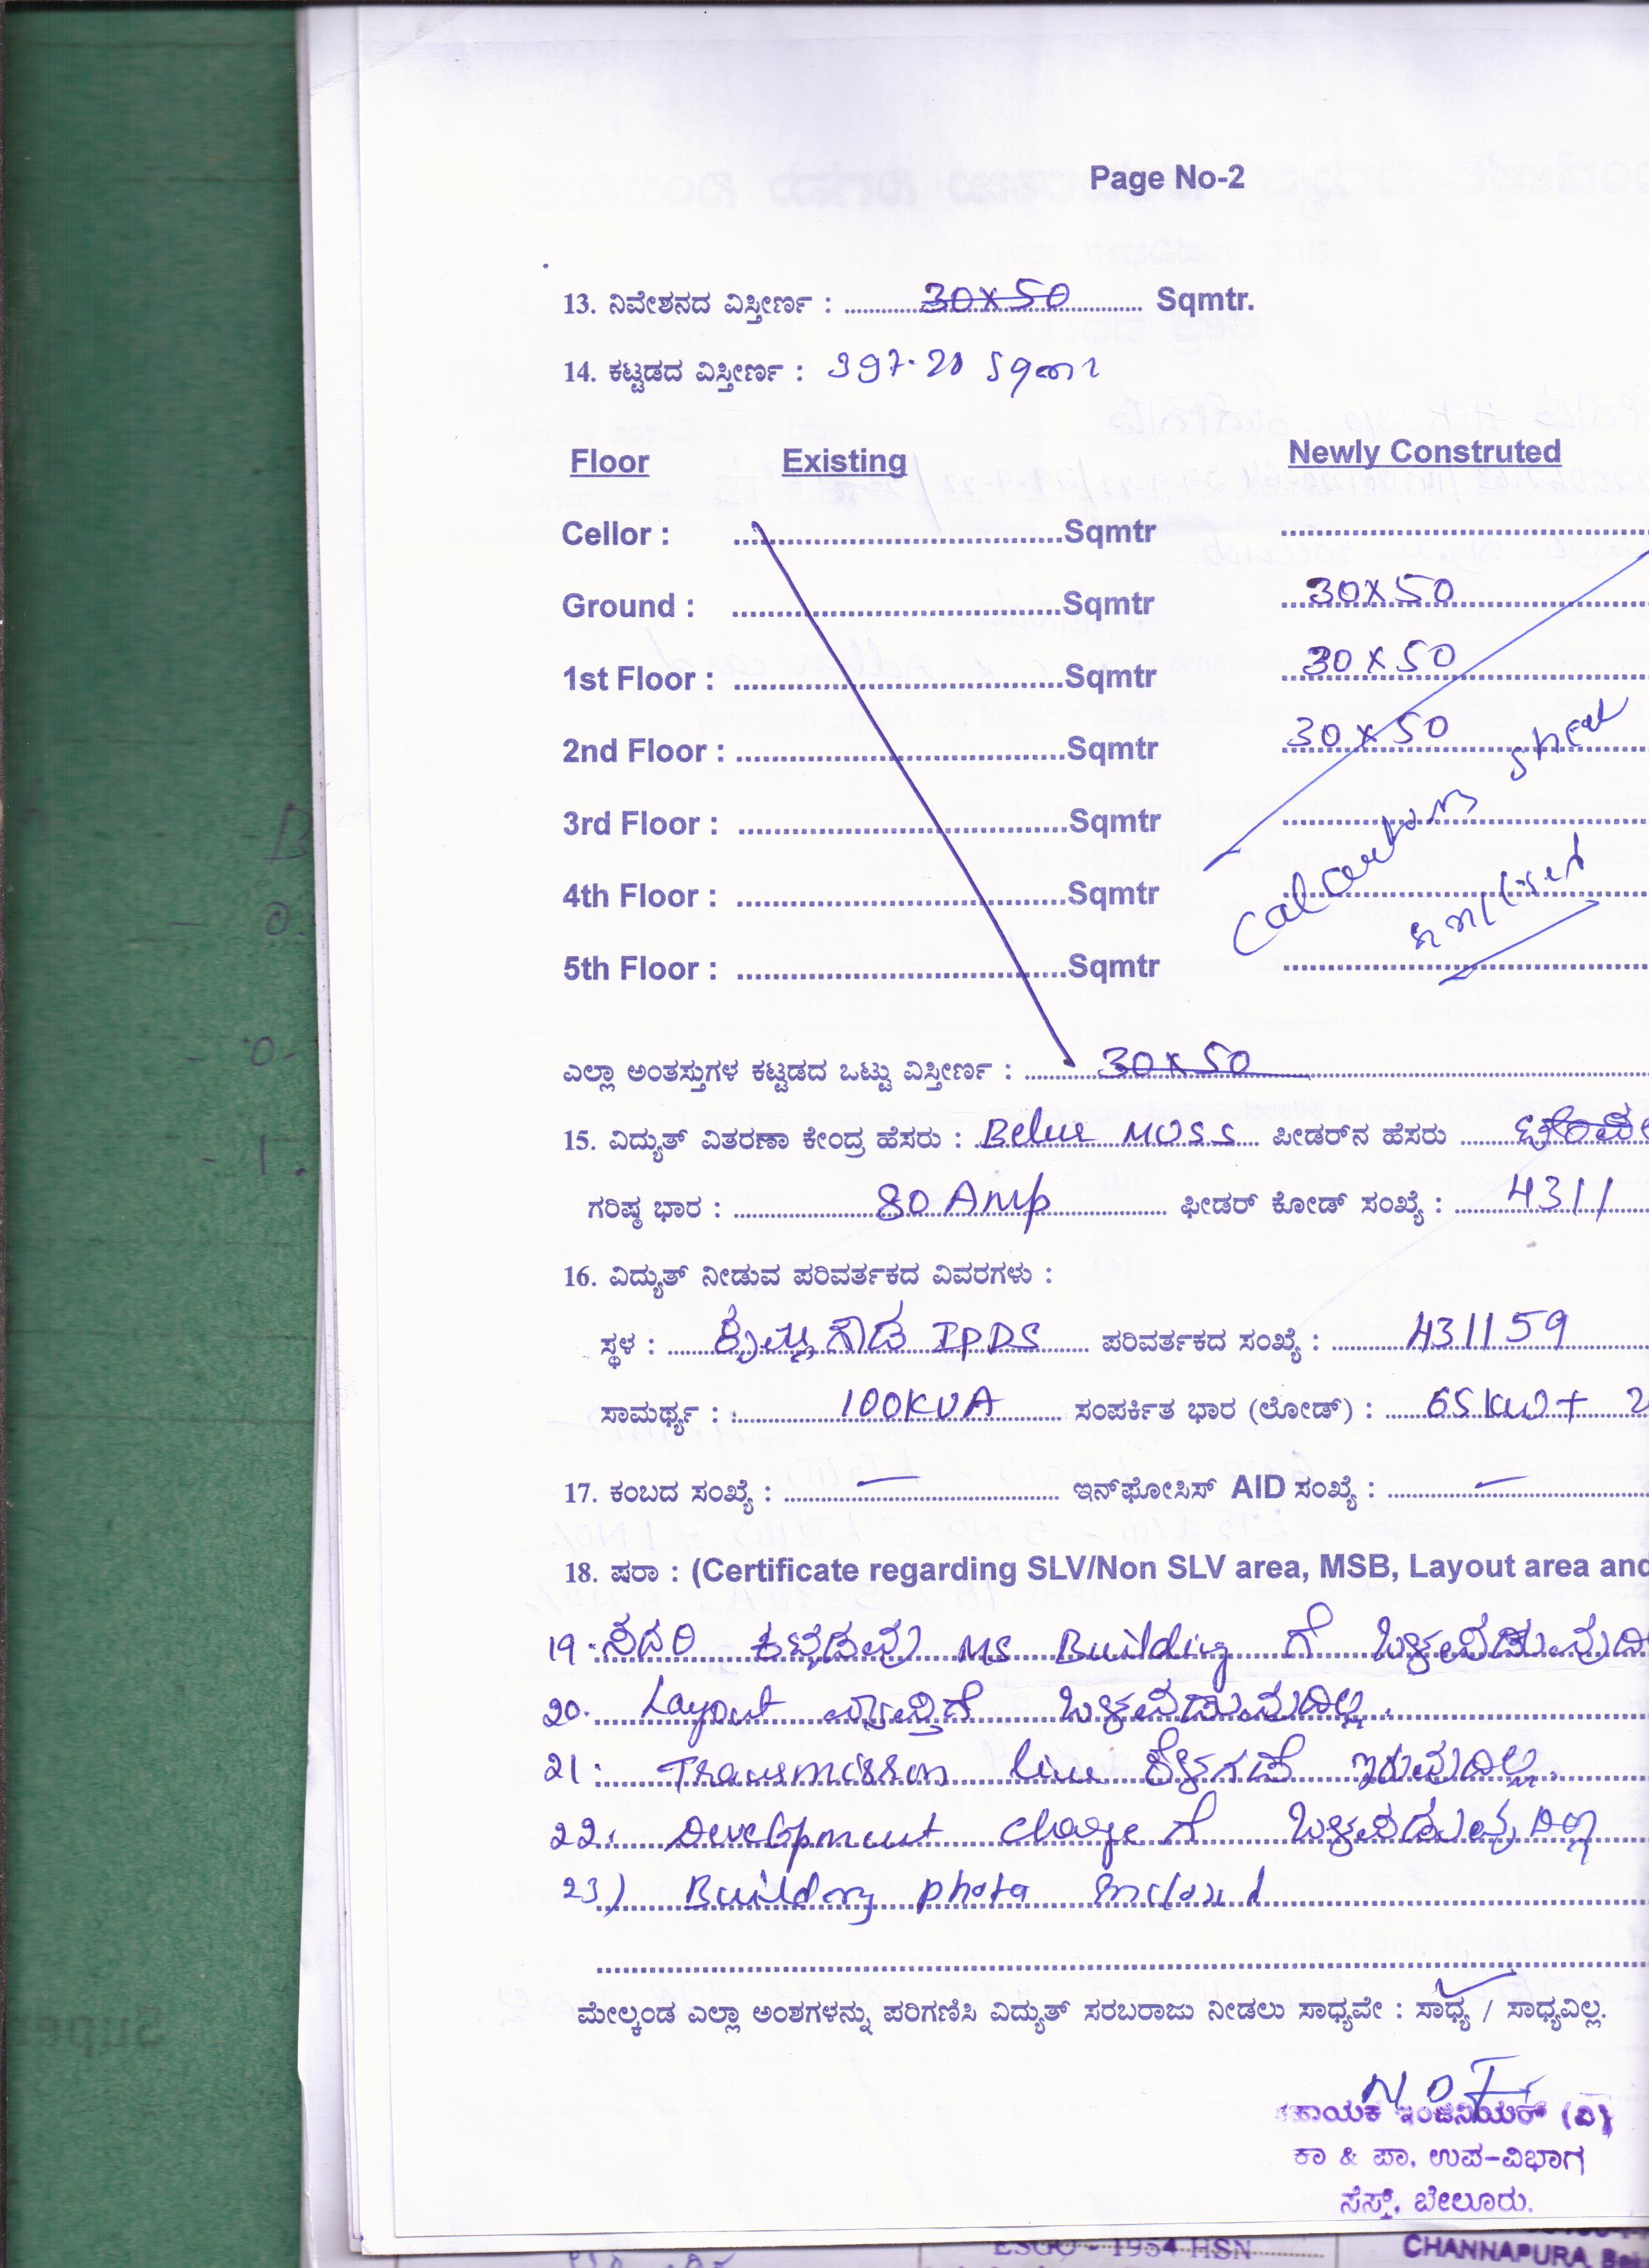 Page No-2
13. ನಿವೇಶನದ ವಿಸ್ತೀರ್ಣ : 30x50 Sqmtr.
14. ಕಟ್ಟಡದ ವಿಸ್ತೀರ್ಣ : 397.20 Sqmr
Floor Existing Newly Construted
Cellor : Sqmtr
Ground : Sqmtr 30x50
1st Floor : Sqmtr 30x50
2nd Floor : Sqmtr 30x50
3rd Floor : Sqmtr
4th Floor : Sqmtr
5th Floor : Sqmtr
sheet
ಎಲ್ಲಾ ಅಂತಸ್ತುಗಳ ಕಟ್ಟಡದ ಒಟ್ಟು ವಿಸ್ತೀರ್ಣ : 30x50
15. ವಿದ್ಯುತ್ ವಿತರಣಾ ಕೇಂದ್ರ ಹೆಸರು : Belur MUSS ಪೀಡರ್‌ನ ಹೆಸರು
ಗರಿಷ್ಠ ಭಾರ : 80 Amp ಫೀಡರ್ ಕೋಡ್ ಸಂಖ್ಯೆ : 4311
16. ವಿದ್ಯುತ್ ನೀಡುವ ಪರಿವರ್ತಕದ ವಿವರಗಳು :
ಸ್ಥಳ : IPDS ಪರಿವರ್ತಕದ ಸಂಖ್ಯೆ : 431159
ಸಾಮರ್ಥ್ಯ : 100KVA ಸಂಪರ್ಕಿತ ಭಾರ (ಲೋಡ್) : 65kw+ 2
17. ಕಂಬದ ಸಂಖ್ಯೆ : — ಇನ್‌ಫೋಸಿಸ್ AID ಸಂಖ್ಯೆ : —
18. ಷರಾ : (Certificate regarding SLV/Non SLV area, MSB, Layout area and
19. ಸದರಿ ಕಟ್ಟಡವು MS Building ಗೆ
20. Layout ವ್ಯಾಪ್ತಿಗೆ ಒಳಪಡುವುದಿಲ್ಲ.
21. Transmission line ಕೆಳಗಡೆ ಇರುವುದಿಲ್ಲ.
22. Development charge ಗೆ ಒಳಪಡುವುದಿಲ್ಲ
23) Building photo enclosed
ಮೇಲ್ಕಂಡ ಎಲ್ಲಾ ಅಂಶಗಳನ್ನು ಪರಿಗಣಿಸಿ ವಿದ್ಯುತ್ ಸರಬರಾಜು ನೀಡಲು ಸಾಧ್ಯವೇ : ಸಾಧ್ಯ / ಸಾಧ್ಯವಿಲ್ಲ.
ಸಹಾಯಕ ಇಂಜಿನಿಯರ್ (ವಿ)
ಕಾ & ಪಾ, ಉಪ-ವಿಭಾಗ
ಸೆಸ್ಕ್, ಬೇಲೂರು.
1954 HSN
CHANNAPURA